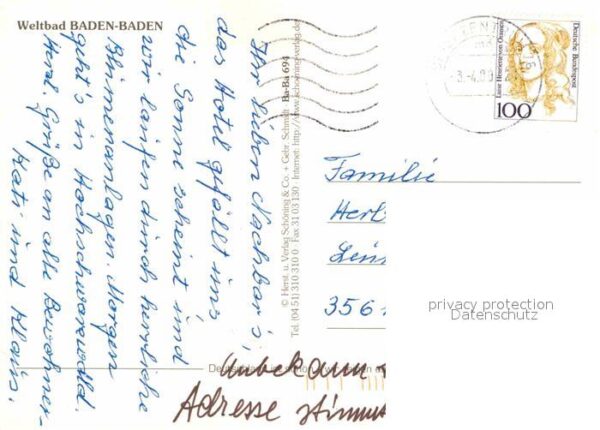 Weltbad BADEN-BADEN
Ihr lieben Nachbar's,
das Hotel gefällt uns
die Sonne scheint und
wir laufen durch herrliche
Blumenanlagen. Morgen
geht's in Hochschwarzwald.
Herzl. Grüße an alle Bewohner-
Kati und Klaus.
© Herst. u. Verlag Schöning & Co. + Gebr. Schmidt Ba-Ba 694
Tel. (04-51) 310 310 0 · Fax 31 03 130 · Internet: http://www.schoening-verlag.de
Deutsche Bundespost
Luise Henriette von Oranien
100
Familie
356
privacy protection
Datenschutz
Unbekann
Adresse stimmt